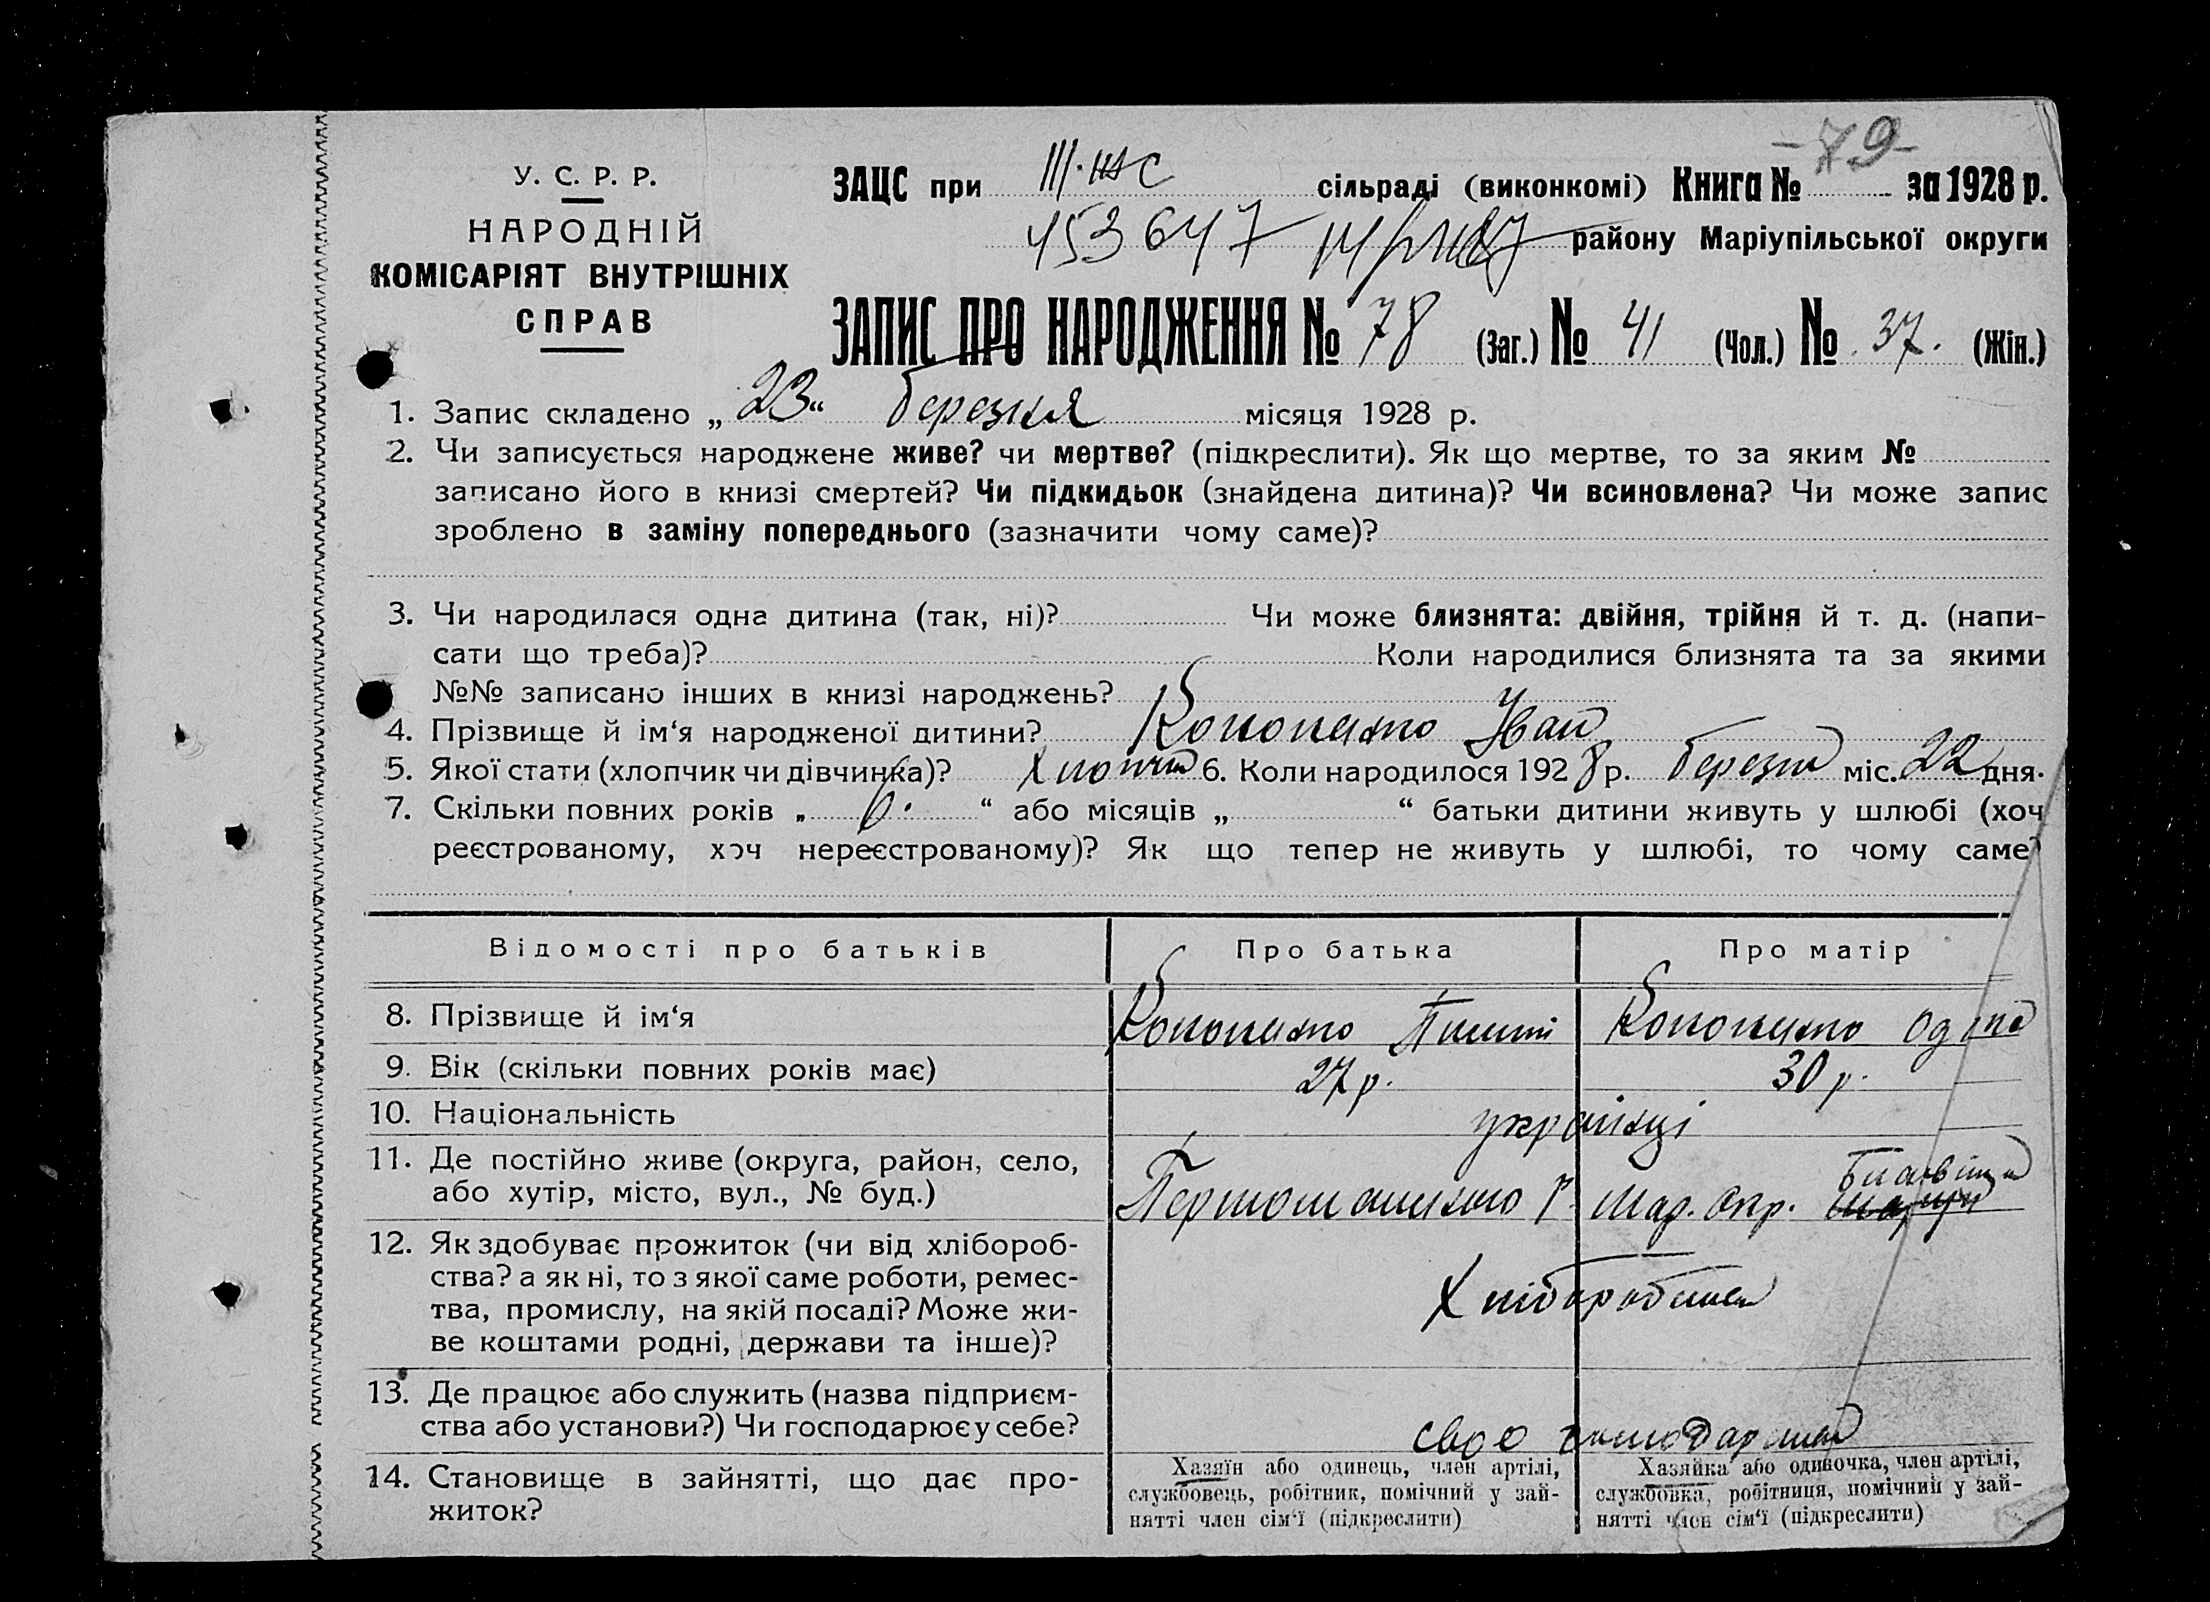 -79-
У. С. Р. Р.
НАРОДНІЙ
КОМІСАРІЯТ ВНУТРІШНІХ
СПРАВ
ЗАЦС при сільраді (виконкомі) Книга № за 1928 р.
453647 району Маріупільської округи
ЗАПИС ПРО НАРОДЖЕННЯ № 78 (Заг.) № 41 (Чол.) № 37. (Жін.)
1. Запис складено „ 23 “ березня місяця 1928 р.
2. Чи записується народжене живе? чи мертве? (підкреслити). Як що мертве, то за яким №
записано його в книзі смертей? Чи підкидьок (знайдена дитина)? Чи всиновлена? Чи може запис
зроблено в заміну попереднього (зазначити чому саме)?
3. Чи народилася одна дитина (так, ні)? Чи може близнята: двійня, трійня й т. д. (напи-
сати що треба)? Коли народилися близнята та за якими
№№ записано інших в книзі народжень?
4. Прізвище й ім‘я народженої дитини? Іван
5. Якої стати (хлопчик чи дівчинка)? Хлопчик 6. Коли народилося 1928 р. березня міс. 22 дня.
7. Скільки повних років „ 6. “ або місяців „ “ батьки дитини живуть у шлюбі (хоч
реєстрованому, хоч нереєстрованому)? Як що тепер не живуть у шлюбі, то чому саме?
Відомості про батьків Про батька Про матір
8. Прізвище й ім‘я
9. Вік (скільки повних років має) 27 р. 30 р.
10. Національність українці
11. Де постійно живе (округа, район, село,
або хутір, місто, вул., № буд.) Мар. Окр.
12. Як здобуває прожиток (чи від хлібороб-
ства? а як ні, то з якої саме роботи, ремес-
тва, промислу, на якій посаді? Може жи-
ве коштами родні, держави та інше)?
13. Де працює або служить (назва підприєм-
ства або установи?) Чи господарює у себе? своє
14. Становище в зайнятті, що дає про-
житок?
Хазяїн або одинець, член артілі,
службовець, робітник, помічний у зай-
нятті член сім‘ї (підкреслити)
Хазяйка або одиночка, член артілі,
службовка, робітниця, помічний у зай-
нятті член сім‘ї (підкреслити)